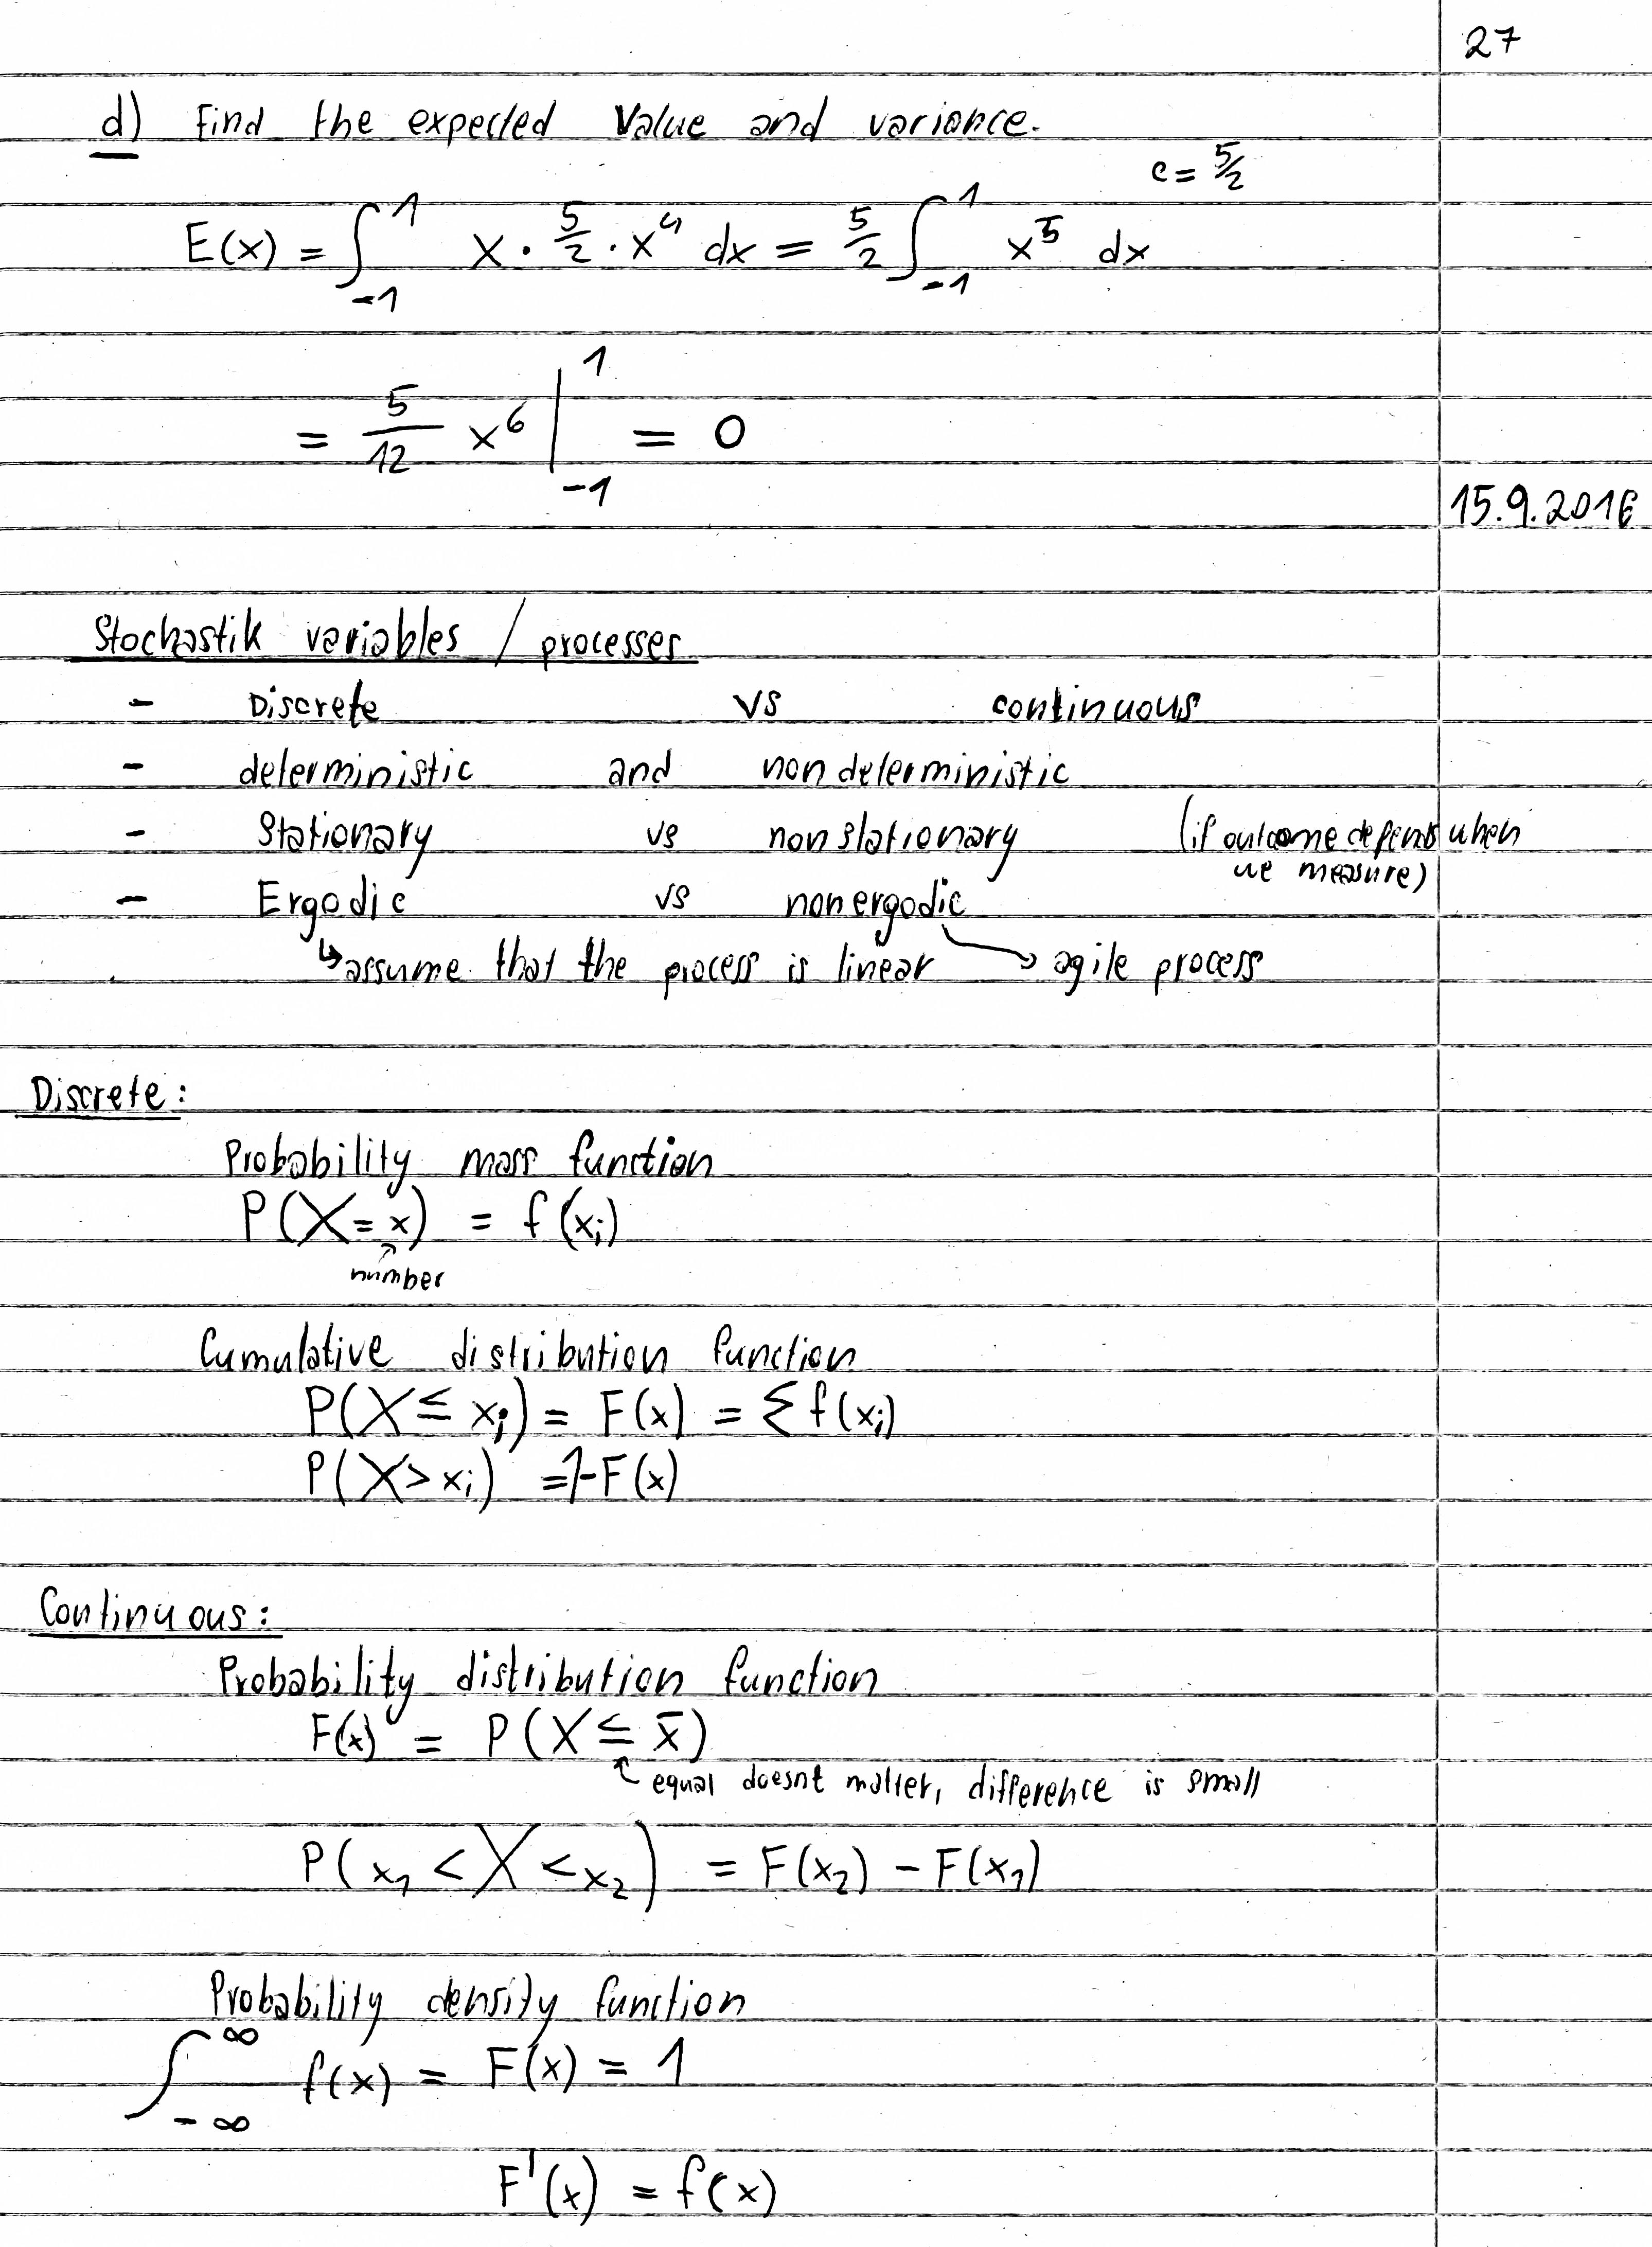 27
d) Find the expected value and variance.
c = 5/2
E(x) = ∫_{-1}^{1} x · 5/2 · x^4 dx = 5/2 ∫_{-1}^{1} x^5 dx
= 5/12 x^6 |_{-1}^{1} = 0
15.9.2016
Stochastik variables / processes
- Discrete vs continuous
- deterministic and non deterministic
- Stationary vs non stationary (if outcome depends when
we measure)
- Ergodic vs non ergodic
↳ assume that the process is linear → agile process
Discrete:
Probability mass function
P(X = x) = f(x_i)
number
Cumulative distribution function
P(X ≤ x_i) = F(x) = Σ f(x_i)
P(X > x_i) = 1 - F(x)
Continuous:
Probability distribution function
F(x) = P(X ≤ x̄)
equal doesnt matter, difference is small
P(x_1 < X < x_2) = F(x_2) - F(x_1)
Probability density function
∫_{-∞}^{∞} f(x) = F(x) = 1
F'(x) = f(x)